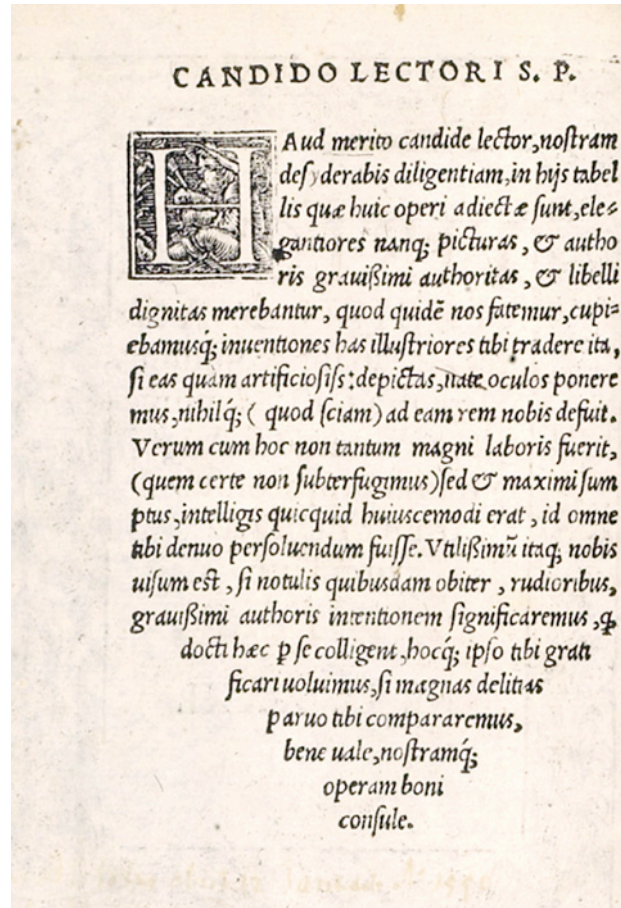 CANDIDO LECTORI S. P.
HAud merito candide lector, noſtram
deſyderabis diligentiam, in hijs tabel
lis quæ huic operi adiectæ ſunt, ele⸗
gantiores nanq; picturas, & autho
ris grauißimi authoritas, & libelli
dignitas merebantur, quod quidē nos fatemur, cupi⸗
ebamusq́; inuentiones has illuſtriores tibi tradere ita,
ſi eas quàm artificioſiſs: depictas, ñate oculos ponere
mus, nihilq́; ( quod ſciam) ad eam rem nobis defuit.
Verum cum hoc non tantum magni laboris fuerit,
(quem certe non ſubterfugimus) ſed & maximi ſum
ptus, intelligis quicquid huiuscemodi erat, id omne
tibi denuo perſoluendum fuiſſe. Vtilißimū itaq; nobis
uiſum eſt, ſi notulis quibusdam obiter, rudioribus,
grauißimi authoris intentionem ſignificaremus, ꝙ
docti hæc ꝑ ſe colligent, hocq́; ipſo tibi grati
ficari uoluimus, ſi magnas delitias
paruo tibi compararemus,
bene uale, noſtramq́;
operam boni
conſule.